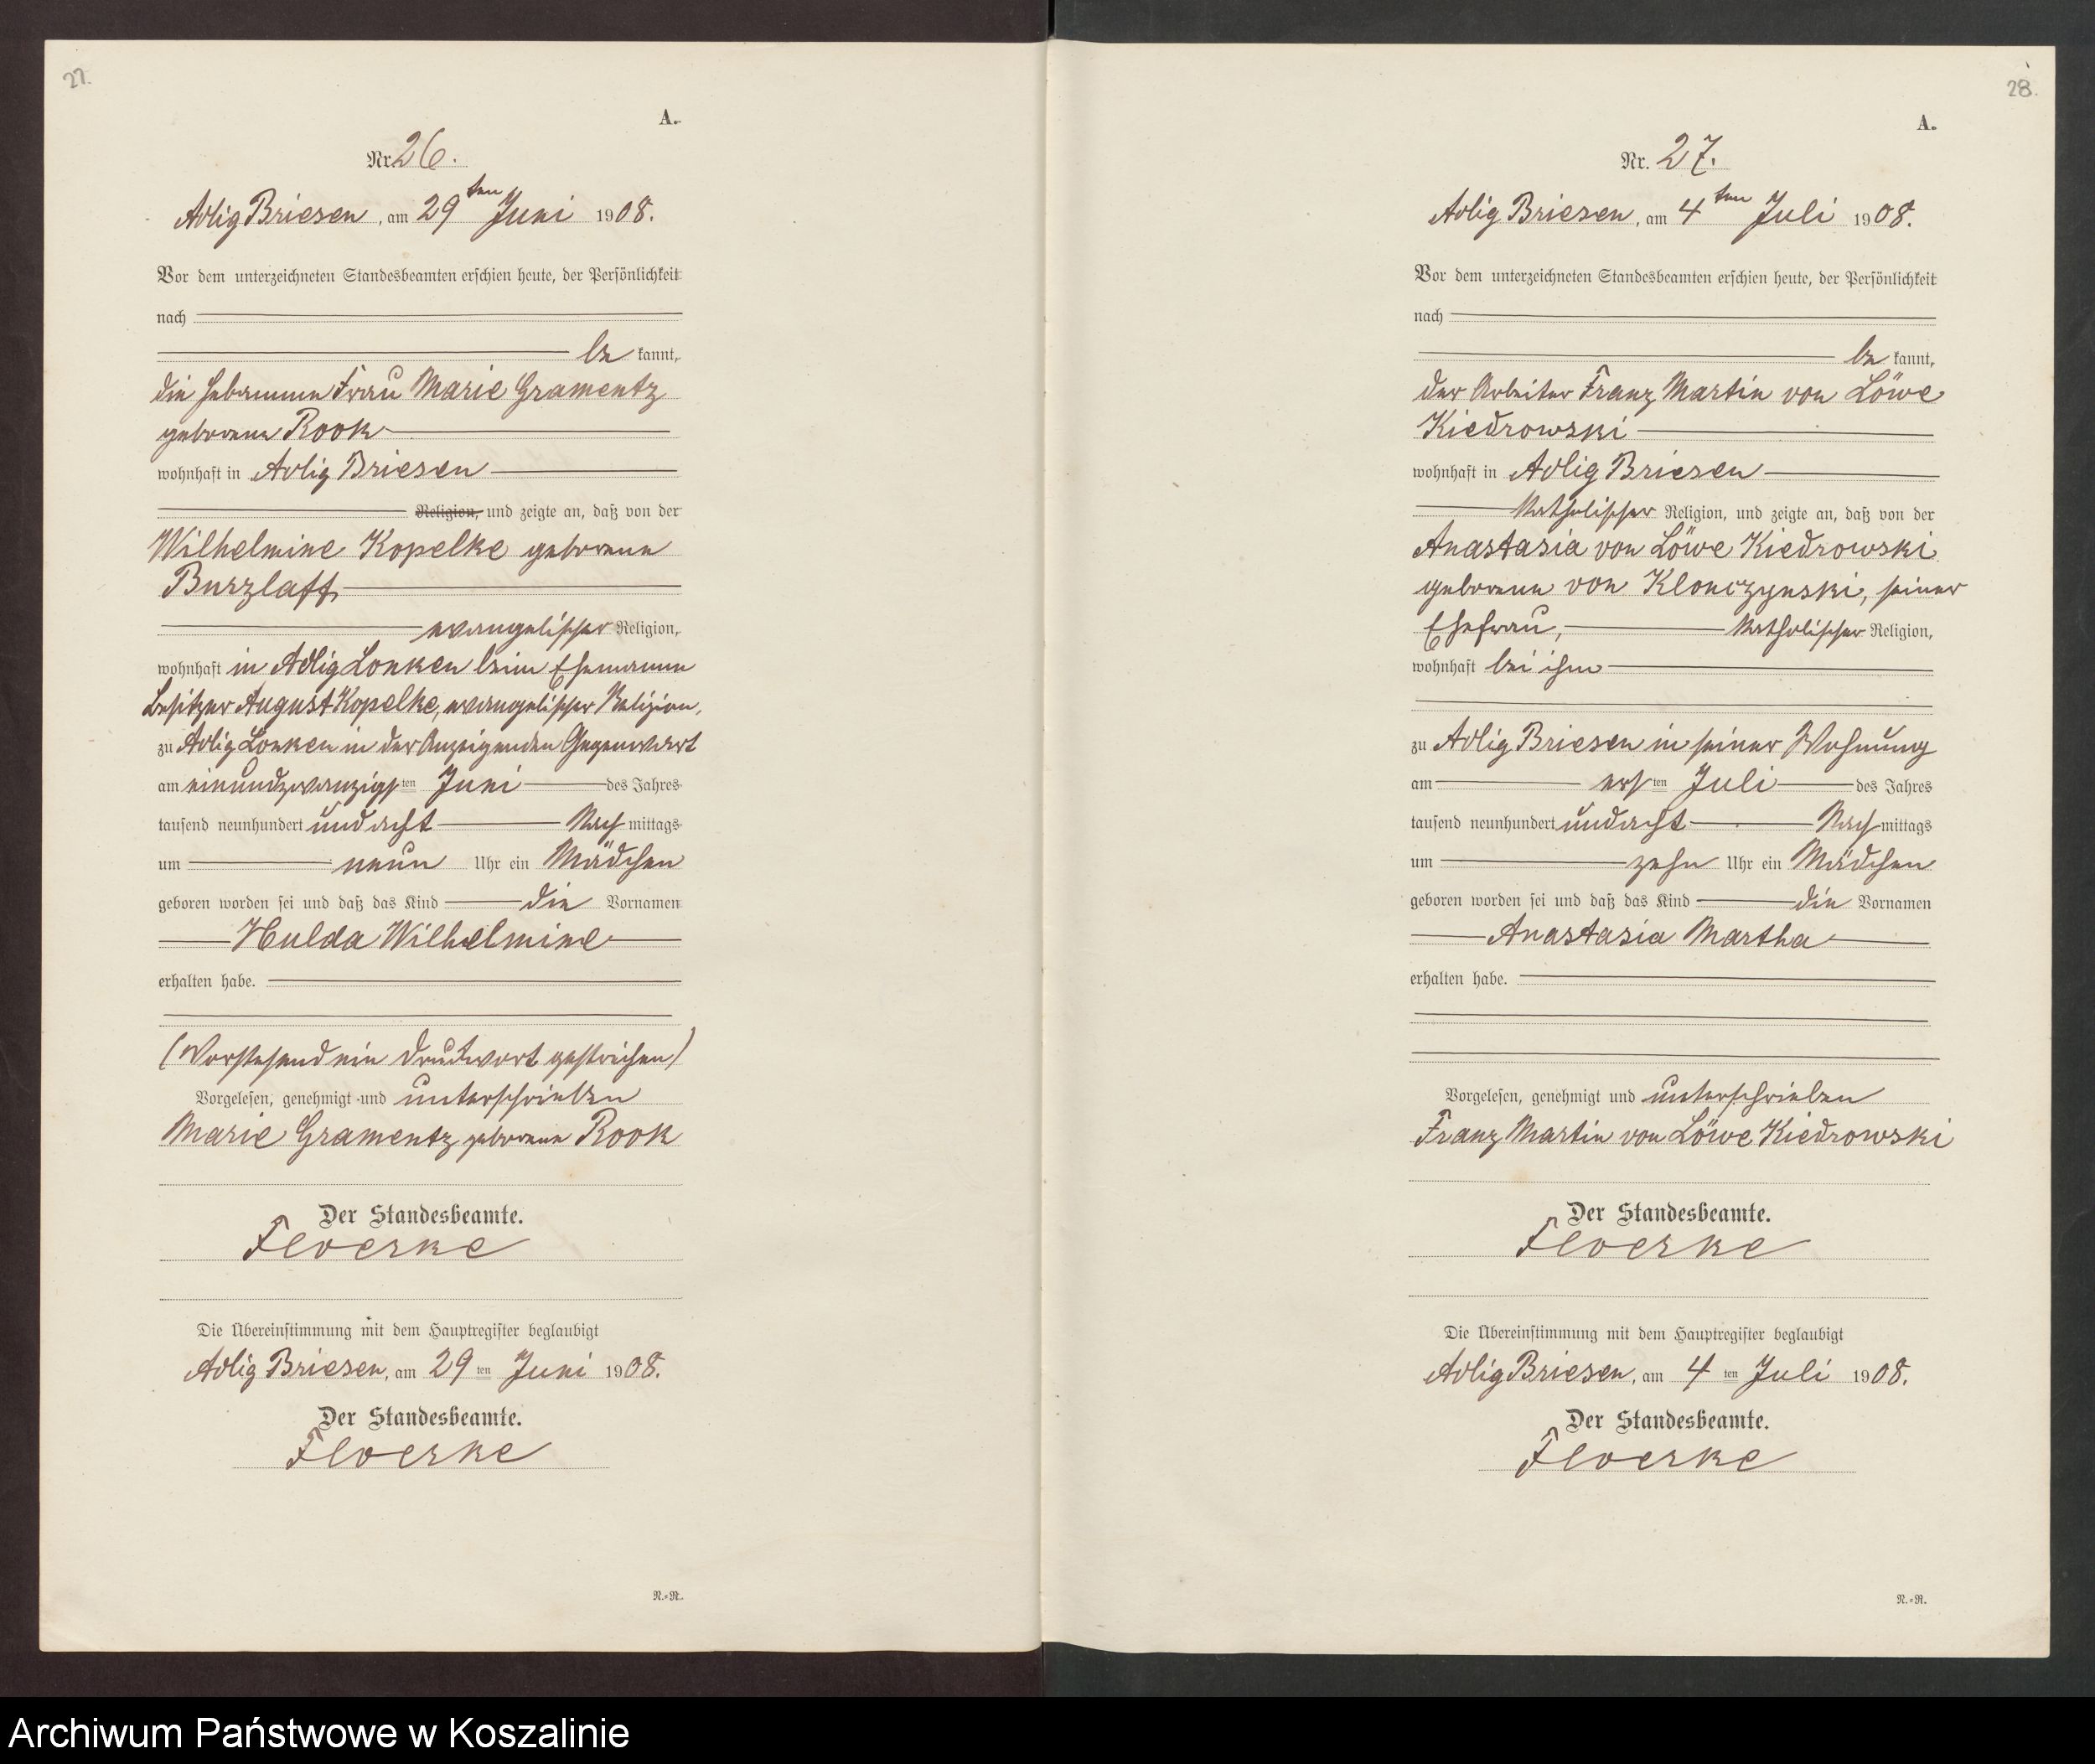 27.
A.
Nr. 26.
Adlig Briesen, am 29ten Juni 1908.
Vor dem unterzeichneten Standesbeamten erschien heute, der Persönlichkeit
nach
be kannt,
die Hebamme Frau Marie Gramentz
geborene Rook
wohnhaft in Adlig Briesen
Religion, und zeigte an, daß von der
Wilhelmine Kopelke geborene
Burzlaff
evangelischer Religion,
wohnhaft in Adlig Lonken beim Ehemann
Besitzer August Kopelke, evangelischer Religion,
zu Adlig Lonken in der Anzeigenden Gegenwart
am einundzwanzigsten Juni des Jahres
tausend neunhundert undacht Nach mittags
um neun Uhr ein Mädchen
geboren worden sei und daß das Kind die Vornamen
Hulda Wilhelmine
erhalten habe.
(Vorstehend ein Druckwort gestrichen)
Vorgelesen, genehmigt und unterschrieben
Marie Gramentz geborene Rook
Der Standesbeamte.
Floerke
Die Übereinstimmung mit dem Hauptregister beglaubigt
Adlig Briesen, am 29ten Juni 1908.
Der Standesbeamte.
Floerke
N.=R.
28.
A.
Nr. 27.
Adlig Briesen, am 4ten Juli 1908.
Vor dem unterzeichneten Standesbeamten erschien heute, der Persönlichkeit
nach
be kannt,
der Arbeiter Franz Martin von Löwe
Kiedrowski
wohnhaft in Adlig Briesen
katholischer Religion, und zeigte an, daß von der
Anastasia von Löwe Kiedrowski
geborene von Klonczynski, seiner
Ehefrau, katholischer Religion,
wohnhaft bei ihm
zu Adlig Briesen in seiner Wohnung
am ersten Juli des Jahres
tausend neunhundert undacht Nach mittags
um zehn Uhr ein Mädchen
geboren worden sei und daß das Kind die Vornamen
Anastasia Martha
erhalten habe.
Vorgelesen, genehmigt und unterschrieben
Franz Martin von Löwe Kiedrowski
Der Standesbeamte.
Floerke
Die Übereinstimmung mit dem Hauptregister beglaubigt
Adlig Briesen, am 4ten Juli 1908.
Der Standesbeamte.
Floerke
N.=R.
Archiwum Państwowe w Koszalinie